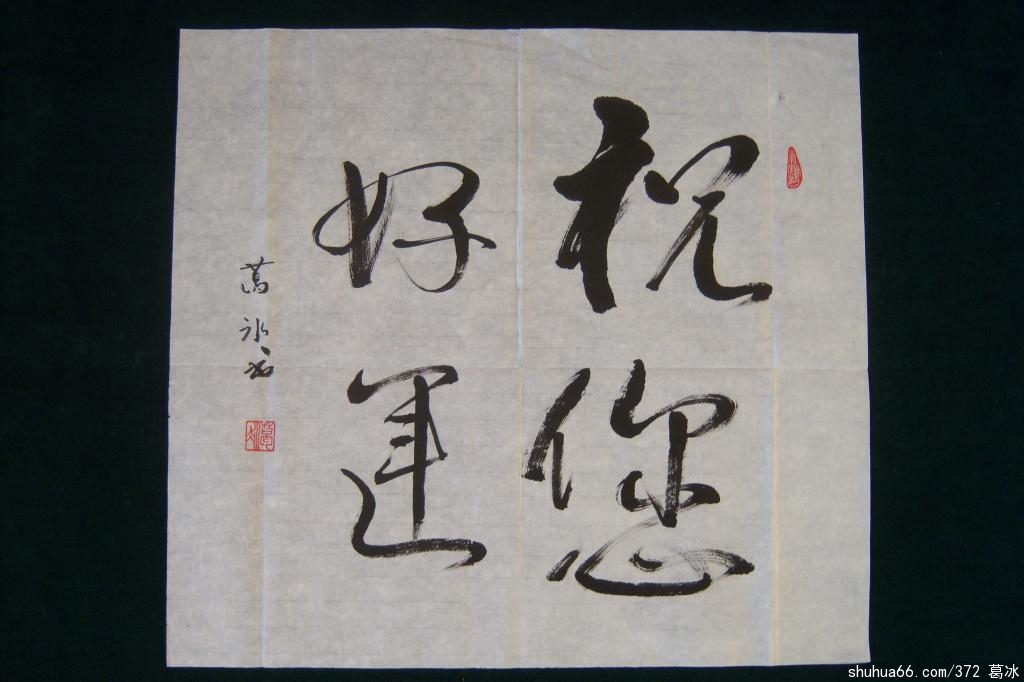 祝您
好運
葛冰书
shuhua66.com/372 葛冰